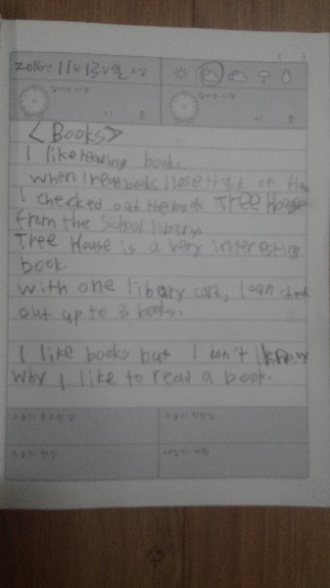 2016년 11월 13일 일요일
<Books>
I like reading books.
when I read books I lose track of time
I checked out the book Tree House
from the School library.
Tree House is a very interesting
book
with one library card, I can check
out up to 3 books.
I like books but I don't know
why I like to read a book.